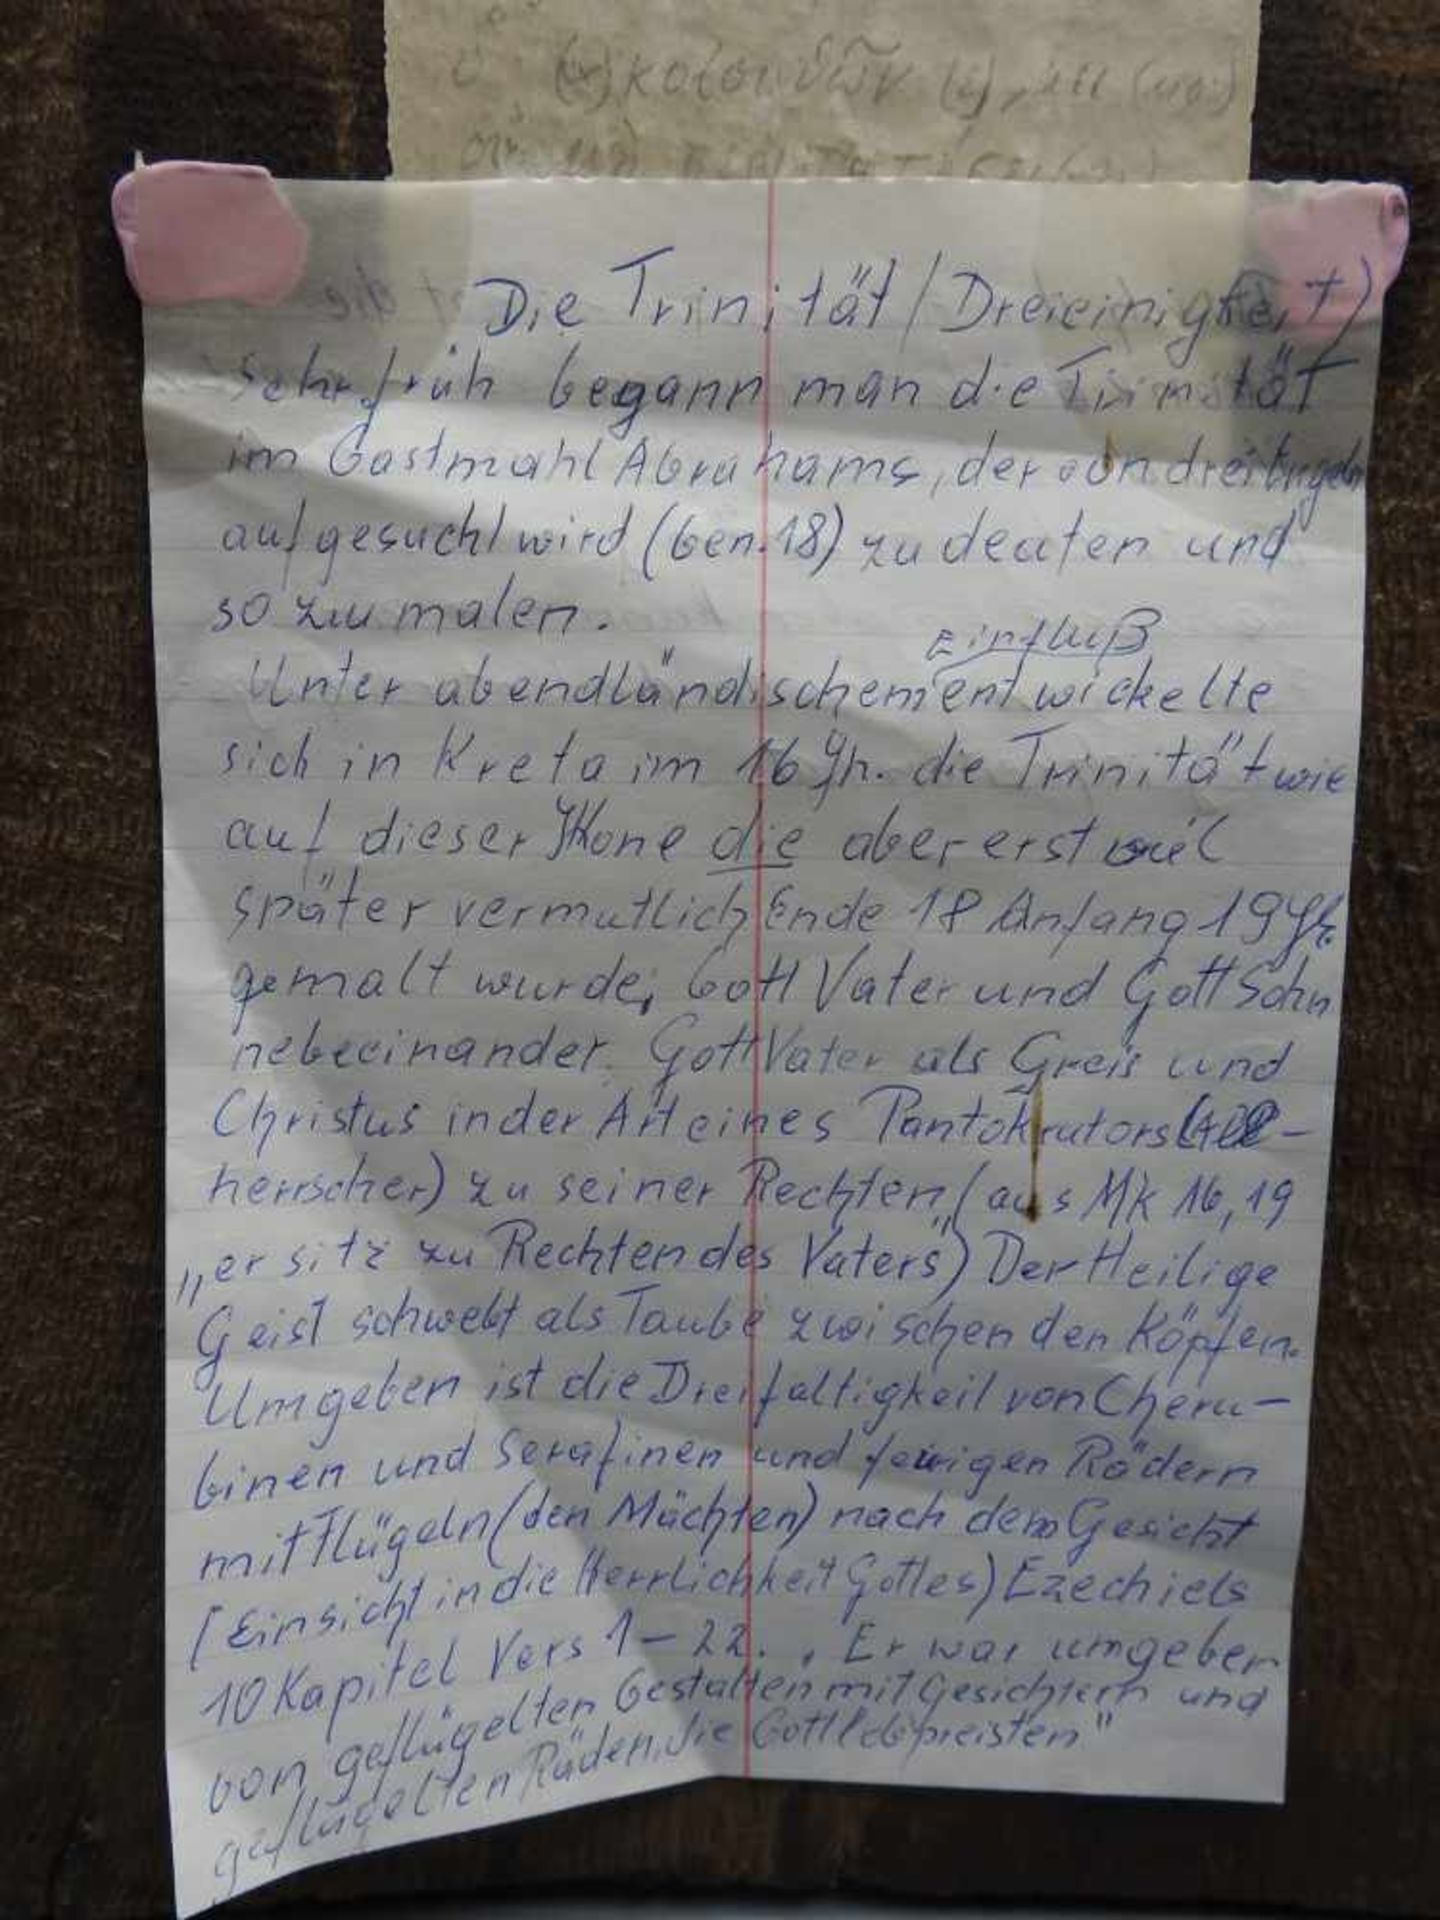 Die Trinität (Dreieinigkeit)
Sehr früh begann man die Trinität
im Gastmahl Abrahams, der von drei Engeln
aufgesucht wird (Gen. 18) zu deuten und
so zu malen.
Einfluß
Unter abendländischem entwickelte
sich in Kreta im 16 Jh. die Trinität wie
auf dieser Ikone die aber erst viel
später vermutlich Ende 18 Anfang 19 Jh.
gemalt wurde, Gott Vater und Gott Sohn
nebeeinander. Gott Vater als Greis und
Christus in der Art eines Pantokrators (All-
herrscher) zu seiner Rechten (aus Mk 16,19
„er sitz zu Rechten des Vaters") Der Heilige
Geist schwebt als Taube zwischen den Köpfen.
Umgeben ist die Dreifaltigkeit von Cheru-
binen und Serafinen und feurigen Rädern
mit Flügeln (den Mächten) nach dem Gesicht
(Einsicht in die Herrlichkeit Gottes) Ezechiels
10 Kapitel Vers 1-22. „Er war umgeben
von geflügelten Gestalten mit Gesichtern und
geflügelten Räden, die Gott lobpreisten"